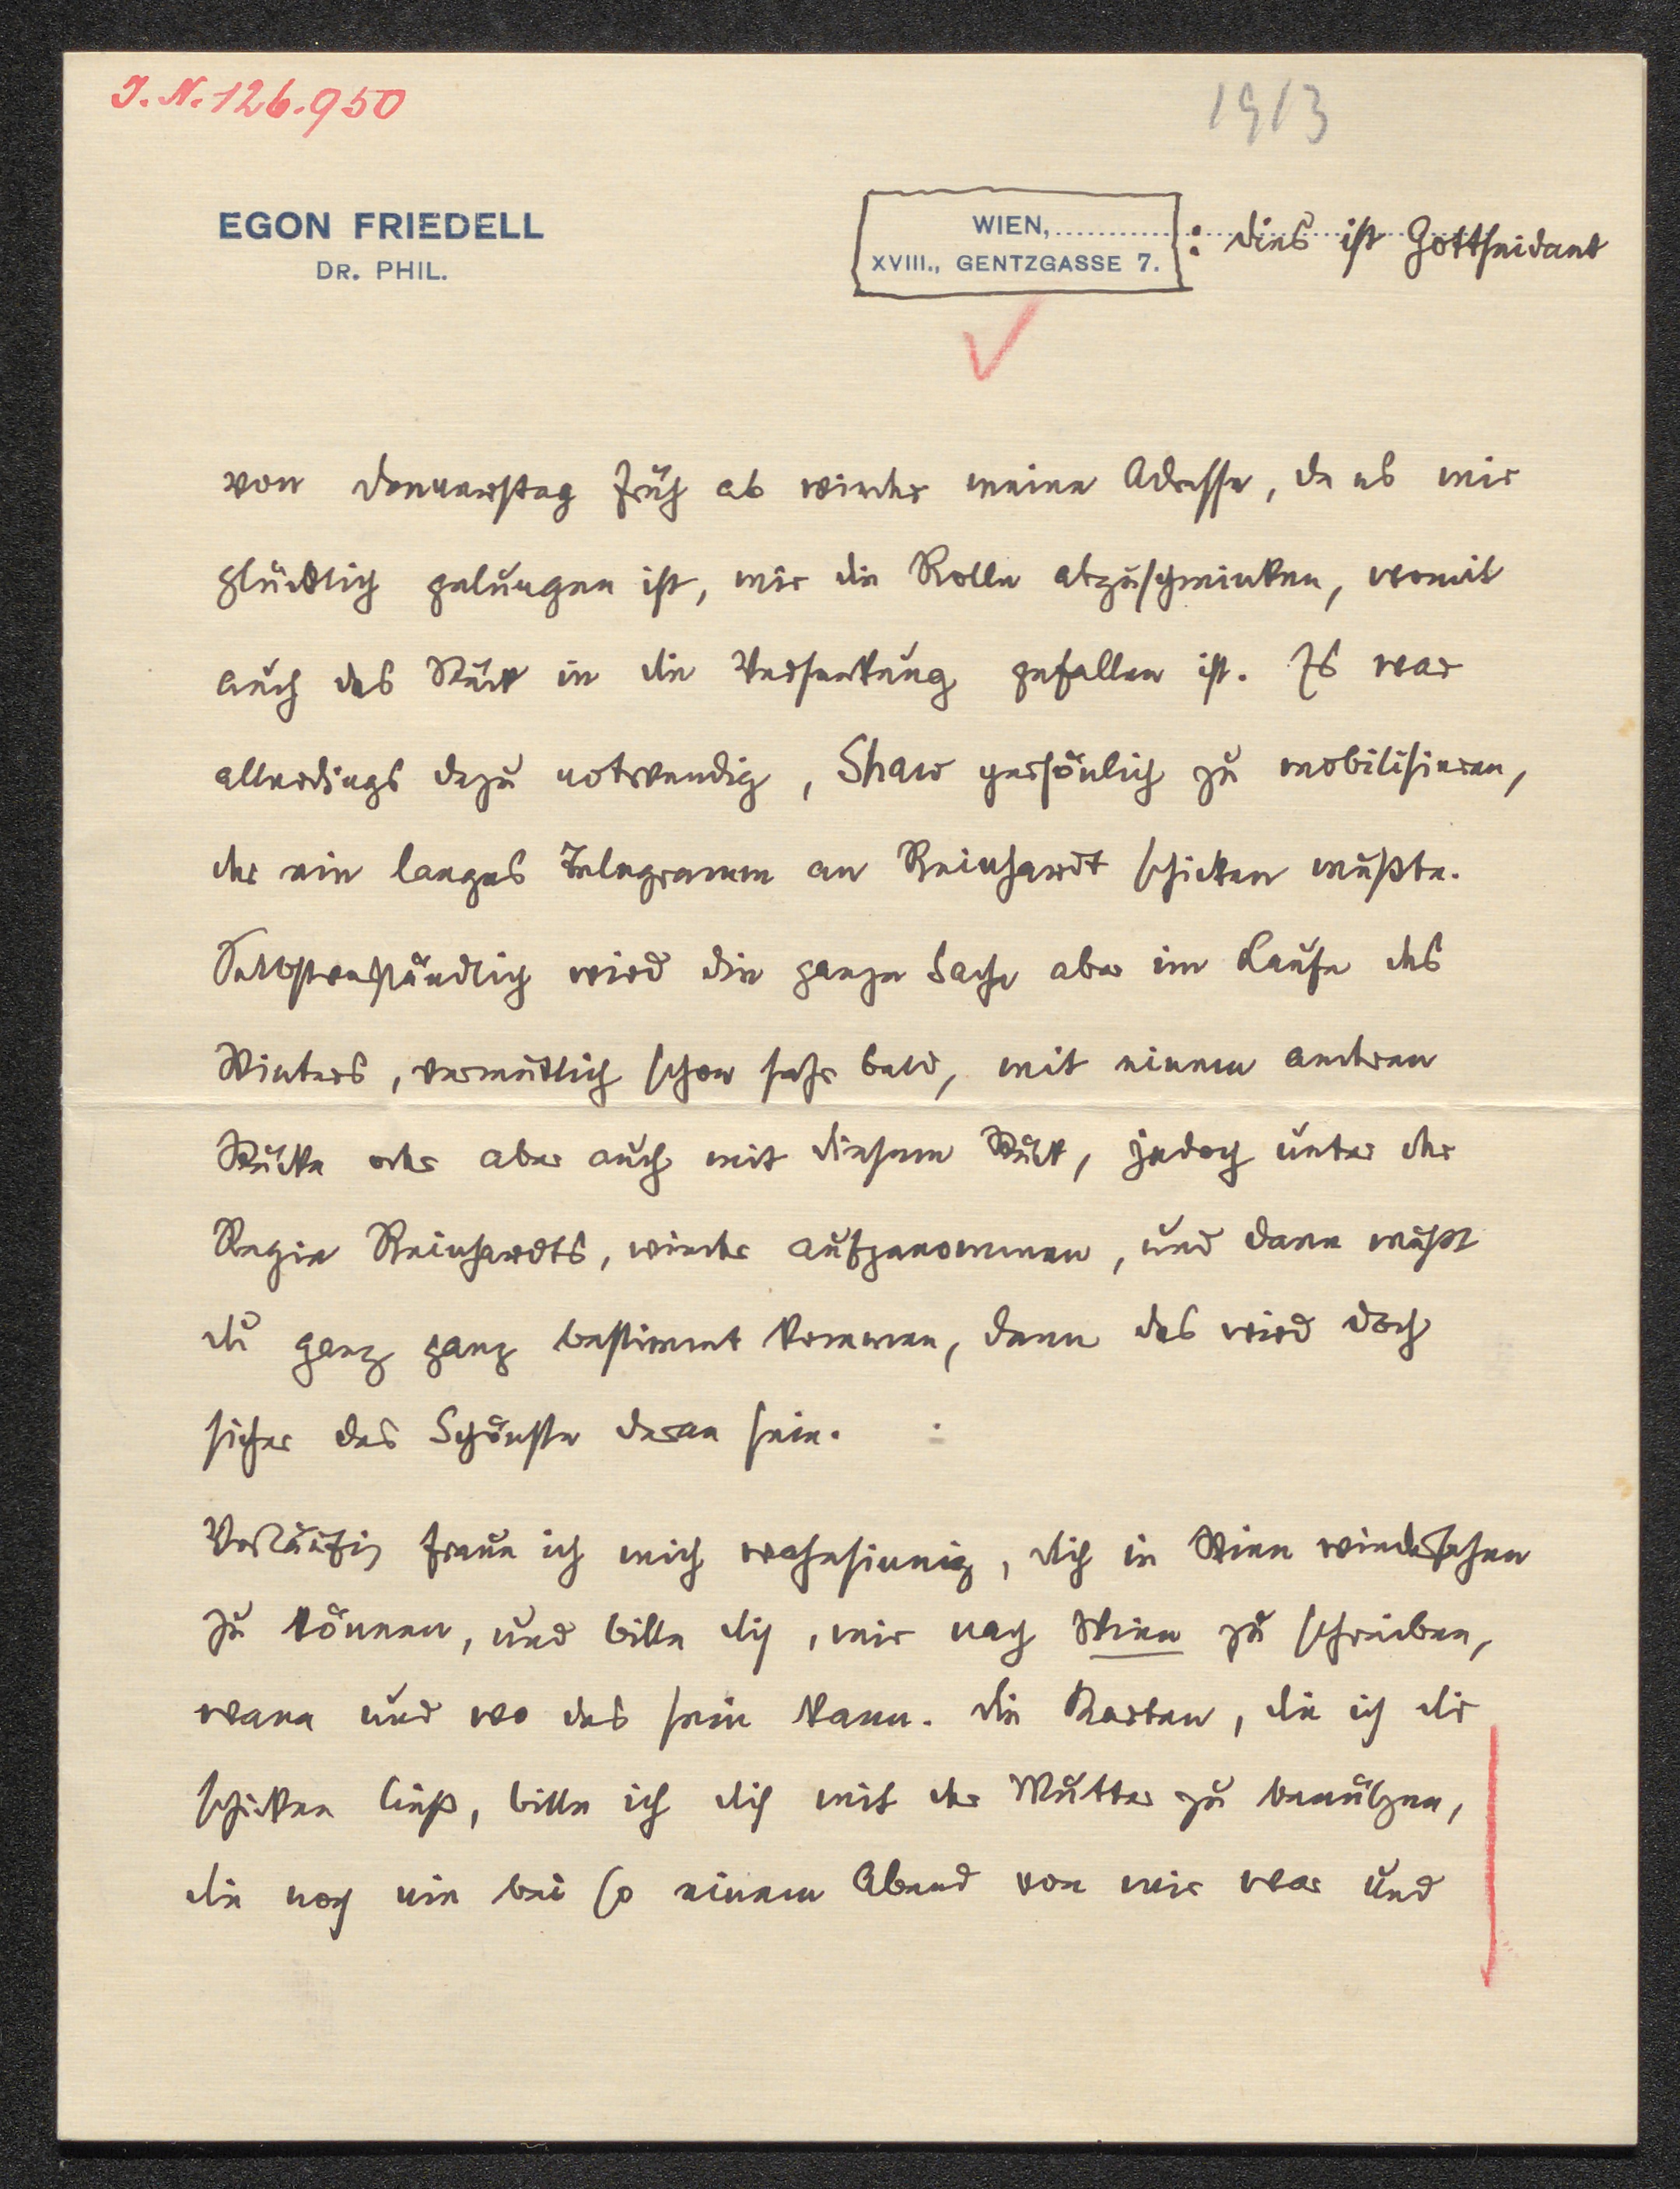 J. N. 126.950
1913
EGON FRIEDELL
DR. PHIL.
WIEN,
XVIII., GENTZGASSE 7.
: dies ist Gottseidank
von donnerstag früh ab wieder meine Adresse, da es mir
glücklich gelungen ist, mir die Rolle abzuschminken, womit
auch das Stück in die Versenkung gefallen ist. Es war
allerdings dazu notwendig, Shaw persönlich zu mobilisieren,
der ein langes Telegramm an Reinhardt schicken mußte.
Selbstverständlich wird die ganze Sache aber im Laufe des
Winters, vermutlich schon sehr bald, mit einem anderen
Stücke oder aber auch mit diesem Stück, jedoch unter der
Regie Reinhardts, wieder aufgenommen, und dann mußt
du ganz ganz bestimmt kommen, denn das wird doch
sicher das Schönste daran sein.
Vorläufig freue ich mich wahnsinnig, dich in Wien wiedersehen
zu können, und bitte dich, mir nach Wien zu schreiben,
wann und wo das sein kann. die Karten, die ich dir
schicken ließ, bitte ich dich mit der Mutter zu benützen,
die noch nie bei so einem Abend von mir war und